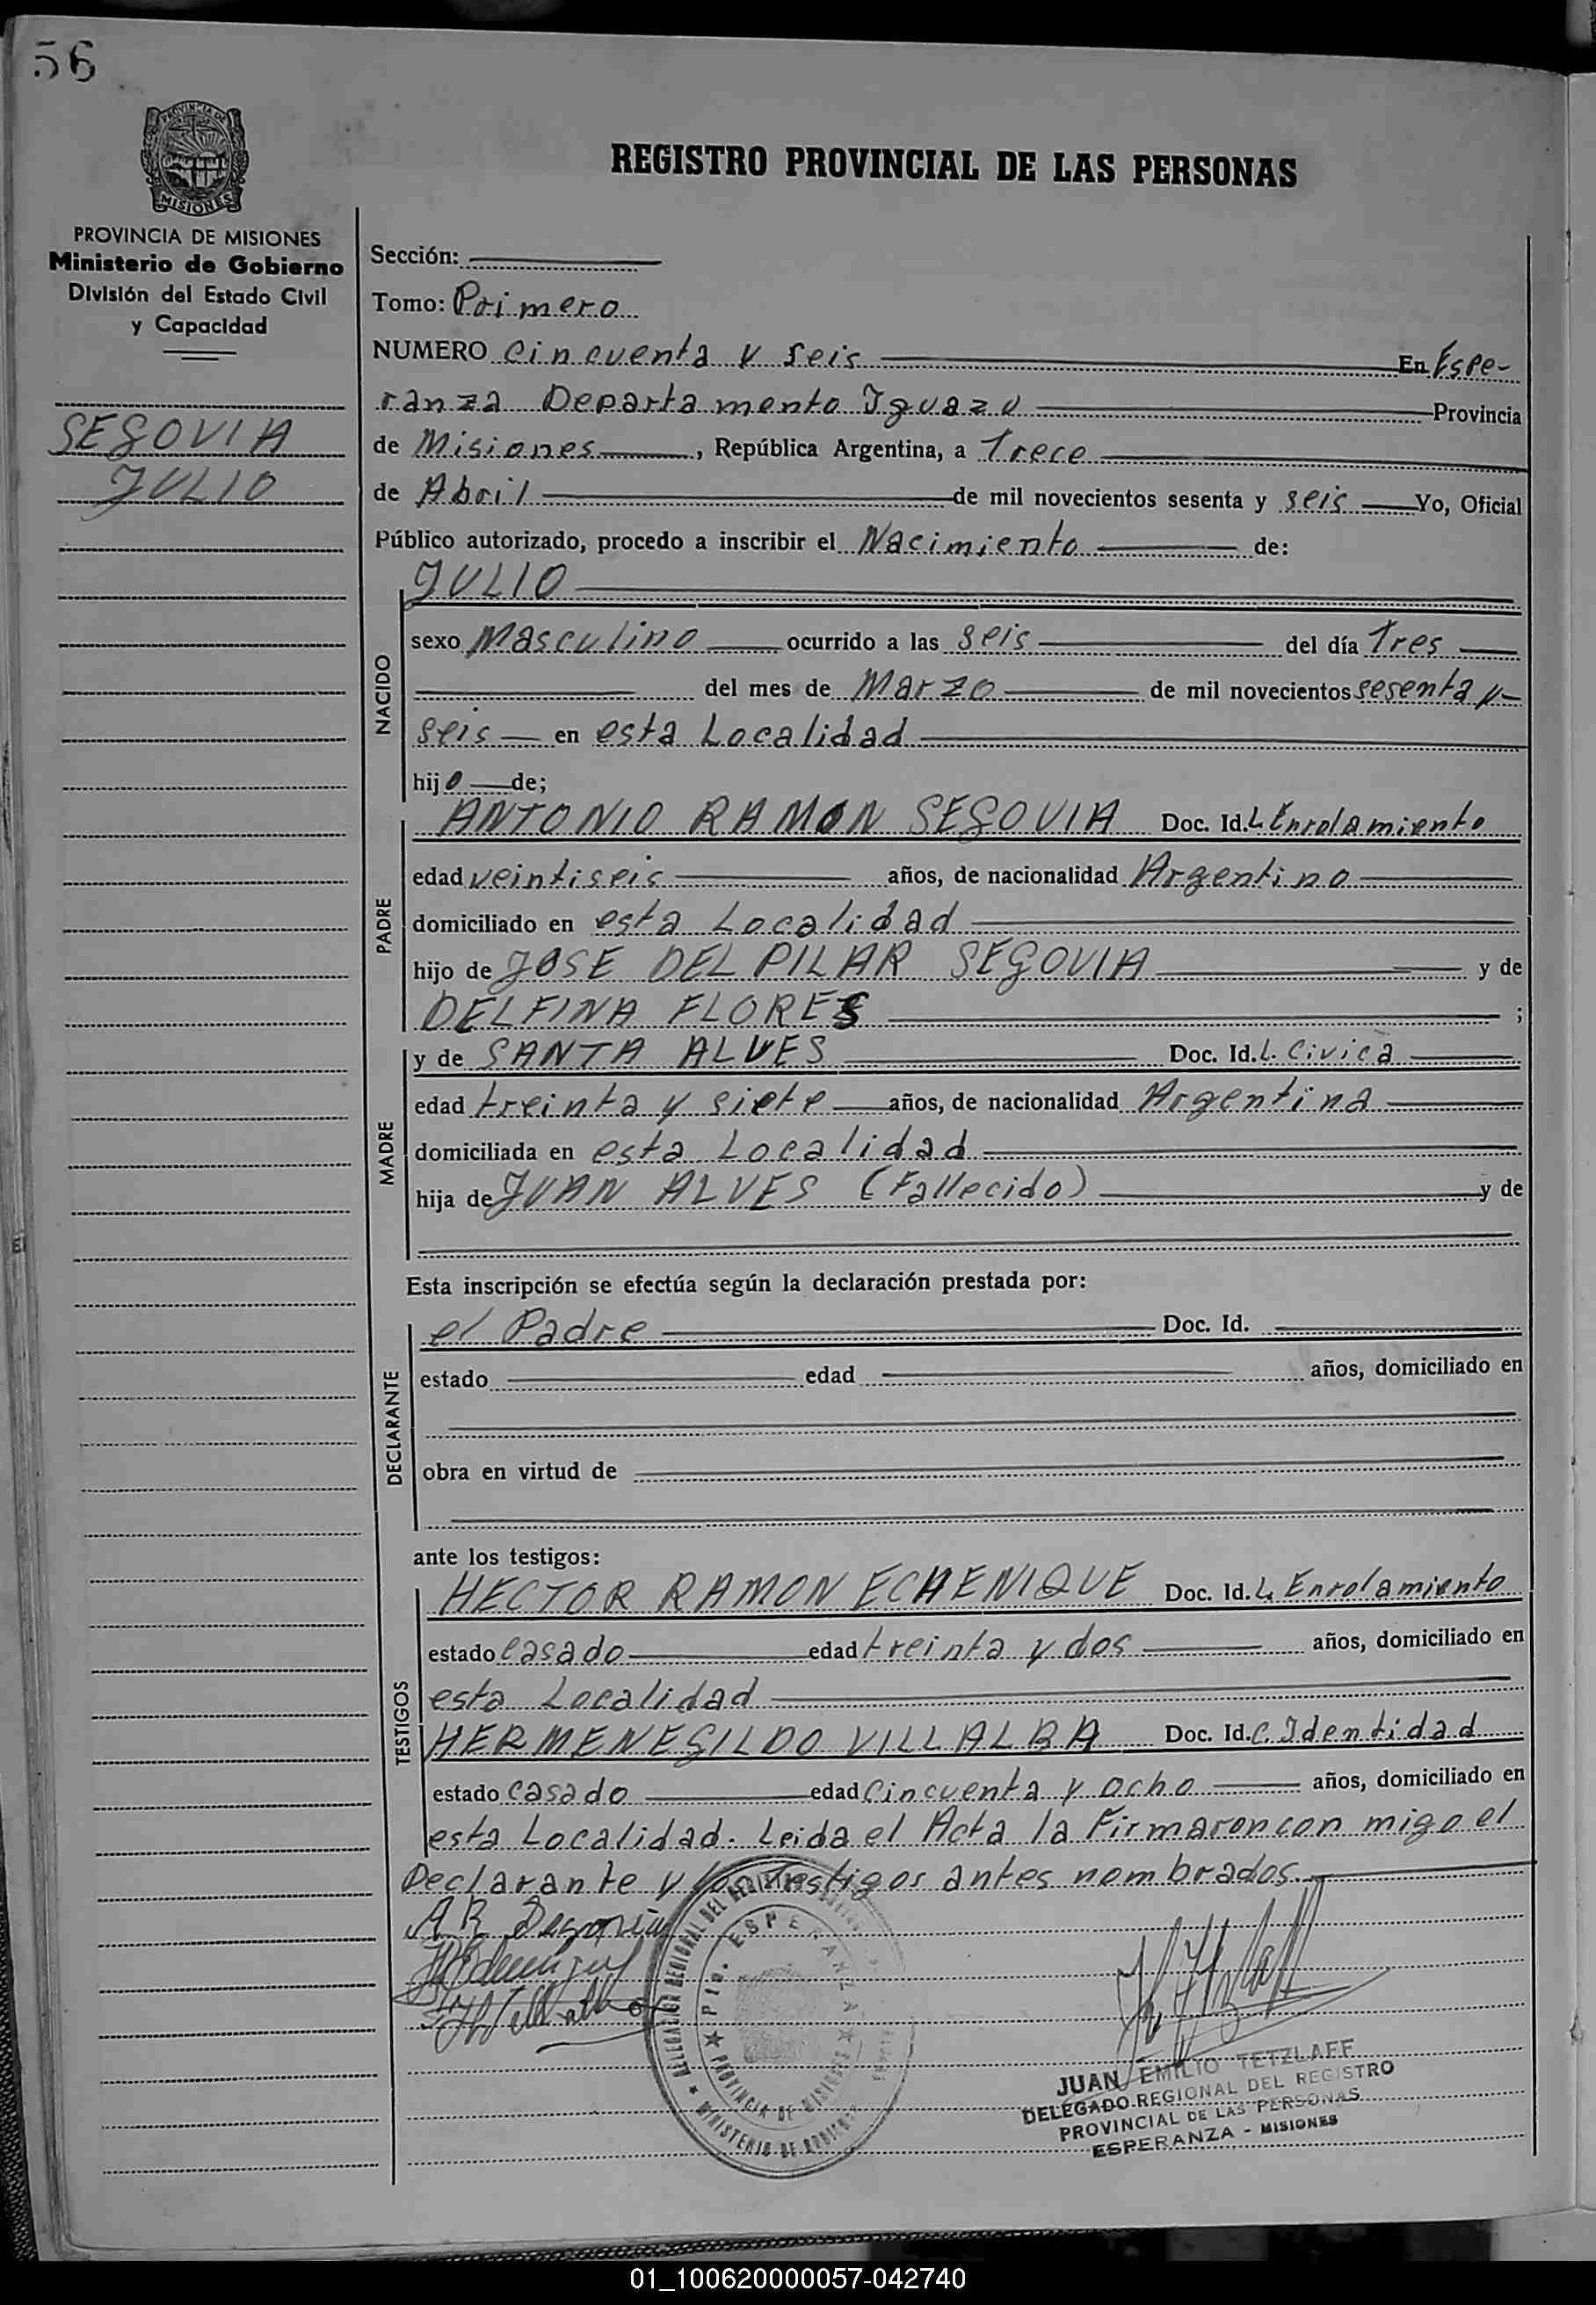 56
PROVINCIA DE
MISIONES
PROVINCIA DE MISIONES
Ministerio de Gobierno
División del Estado Civil
y Capacidad
SEGOVIA
JULIO
REGISTRO PROVINCIAL DE LAS PERSONAS
Sección:
Tomo: Primero
NUMERO Cincuenta y seis En Espe-
ranza Departamento Iguazú Provincia
de Misiones, República Argentina, a Trece
de Abril de mil novecientos sesenta y seis Yo, Oficial
Público autorizado, procedo a inscribir el Nacimiento de:
JULIO
NACIDO
sexo Masculino ocurrido a las seis del día Tres
del mes de Marzo de mil novecientos sesenta y
seis en esta Localidad
hijo de;
PADRE
ANTONIO RAMON SEGOVIA Doc. Id. L. Enrolamiento
edad veintiseis años, de nacionalidad Argentino
domiciliado en esta Localidad
hijo de JOSE DEL PILAR SEGOVIA y de
DELFINA FLORES ;
MADRE
y de SANTA ALVES Doc. Id. L. Civica
edad treinta y siete años, de nacionalidad Argentina
domiciliada en esta Localidad
hija de JUAN ALVES (Fallecido) y de
Esta inscripción se efectúa según la declaración prestada por:
DECLARANTE
el Padre Doc. Id.
estado edad años, domiciliado en
obra en virtud de
ante los testigos:
TESTIGOS
HECTOR RAMON ECHENIQUE Doc. Id. L. Enrolamiento
estado casado edad treinta y dos años, domiciliado en
esta Localidad
HERMENEGILDO VILLALBA Doc. Id. C. Identidad
estado casado edad Cincuenta y ocho años, domiciliado en
esta Localidad. Leida el Acta la Firmaron con migo el
Declarante y los Testigos antes nombrados.
A R Segovia
DELEGACION REGIONAL DEL REGISTRO
Pto. ESPERANZA
PROVINCIA DE MISIONES
MINISTERIO DE GOBIERNO
JUAN EMILIO TETZLAFF
DELEGADO REGIONAL DEL REGISTRO
PROVINCIAL DE LAS PERSONAS
ESPERANZA - MISIONES
01_100620000057-042740